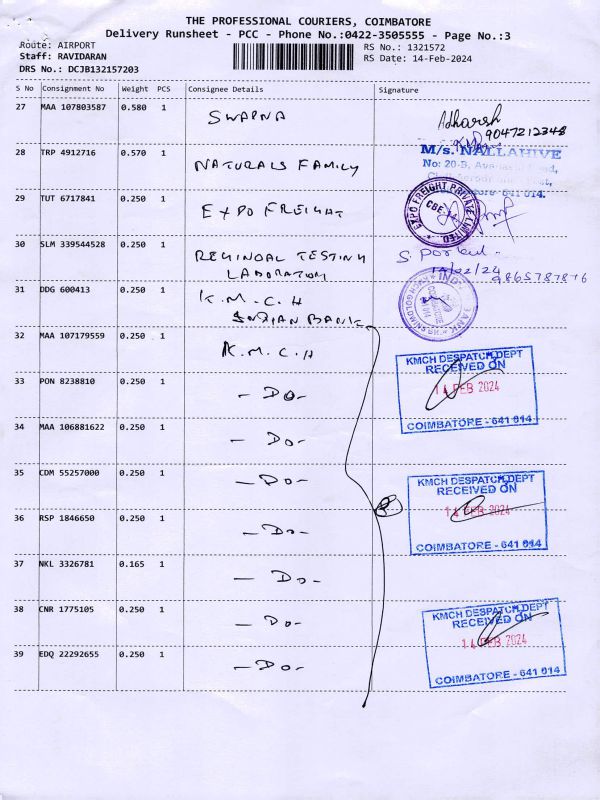 THE PROFESSIONAL COURIERS, COIMBATORE
Delivery Runsheet - PCC - Phone No.:0422-3505555 - Page No.:3
Route: AIRPORT
RS No.: 1321572
Staff: RAVIDARAN
RS Date: 14-Feb-2024
DRS No.: DCJB132157203
S No Consignment No Weight PCS Consignee Details Signature
27 MAA 107803587 0.580 1 SWAPNA Adharsh
9047212348
28 TRP 4912716 0.570 1 NATURALS FAMILY
M/s. NALLAHIVE
No: 20-B,
641 014.
29 TUT 6717841 0.250 1 EXPO FREIGHT
EXPO FREIGHT PRIVATE LIMITED
CBE-14
30 SLM 339544528 0.250 1 REGINOAL TESTING
LABORATORY
14/02/24
9865787876
31 DDG 600413 0.250 1 K.M.C.H
INDIAN BANK
32 MAA 107179559 0.250 1 K.M.C.H
KMCH DESPATCH DEPT
RECEIVED ON
14 FEB 2024
COIMBATORE - 641 014
33 PON 8238810 0.250 1 - Do -
34 MAA 106881622 0.250 1 - Do -
35 CDM 55257000 0.250 1 - Do -
KMCH DESPATCH DEPT
RECEIVED ON
14 FEB 2024
COIMBATORE - 641 014
36 RSP 1846650 0.250 1 - Do -
37 NKL 3326781 0.165 1 - Do -
38 CNR 1775105 0.250 1 - Do -
KMCH DESPATCH DEPT
RECEIVED ON
14 FEB 2024
COIMBATORE - 641 014
39 EDQ 22292655 0.250 1 - Do -